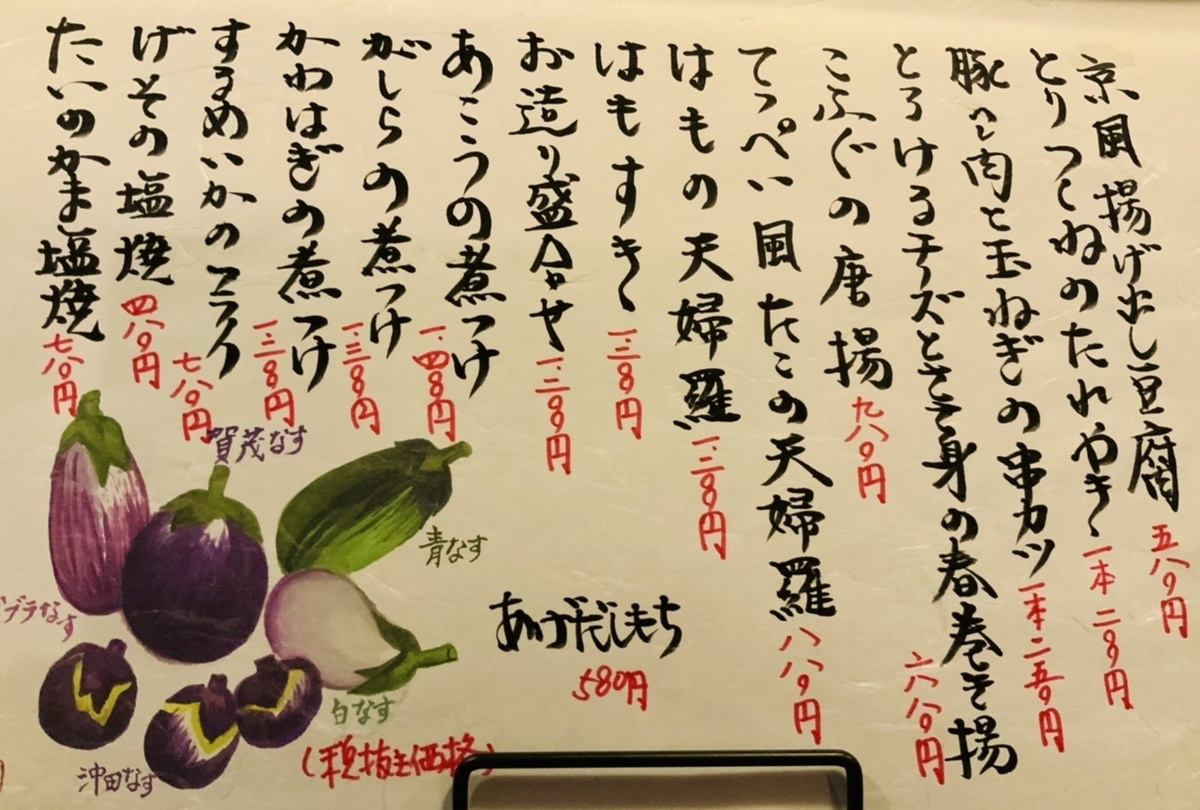 京風揚げ出し豆腐 五八〇円
とりつくねのたれやき 一本 二〇〇円
豚ヘレ肉と玉ねぎの串カツ 一本 二五〇円
とろけるチーズとささ身の春巻き揚 六八〇円
こふぐの唐揚 九八〇円
てっぺい風たこの天婦羅 八八〇円
はもの天婦羅 一.二〇〇円
はもすき 一.二八〇円
お造り盛合せ 一.二〇〇円
あこうの煮つけ 一.四八〇円
がしらの煮つけ 一.二八〇円
かわはぎの煮つけ 一.二八〇円
するめいかの 七八〇円
げその塩焼 四八〇円
たいのかま塩焼 七八〇円
あげだしもち
580円
賀茂なす
青なす
ブラなす
白なす
沖田なす
(税抜き価格)